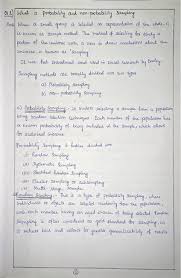 Q.1 What is Probability and non-probability Sampling
Ans When a small group is selected as representative of the whole, it
is known as Sample method. The method of selecting for study a
portion of the universe with a view to draw conclusions about the
universe is known as Sampling.
It was first introduced and used in social research by Bowley.
Sampling methods are broadly divided into two types
a) Probability Sampling
b) Non-probability Sampling
a) Probability Sampling: It involves selecting a sample from a population
using random selection techniques. Each member of the population has
a known probability of being included in the sample, which allows
for statistical inference.
Probability Sampling is further divided into
i) Random Sampling
ii) Systematic Sampling
iii) Stratified Random Sampling
iv) Cluster Sampling or
v) Multi Stage Sampling
Random Sampling: This is a type of probability sampling, where
individuals or objects are selected randomly from the population,
with each member having an equal chance of being selected. Random
Sampling is often considered as gold standard for sampling, as
it reduces bias and allows for greater generalizability of results